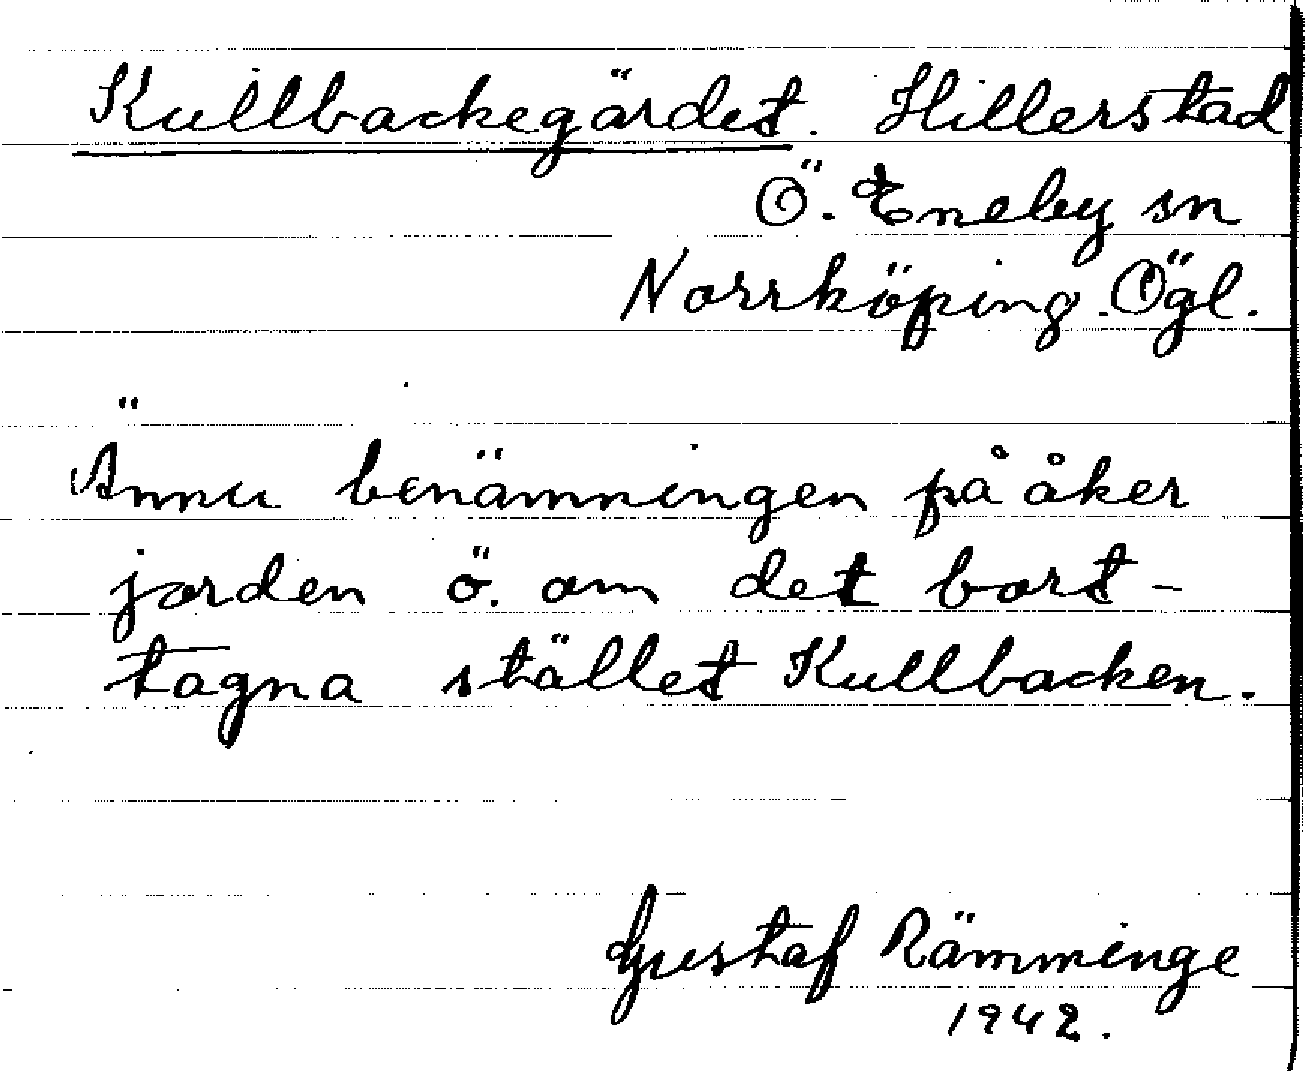 Kullbackegärdet. Hillerstad
Ö. Eneby sn
Norrköping. Ögl.
Ännu benämningen på åker
jorden ö. om det bort-
tagna stället Kullbacken.
Gustaf Rämminge
1942.